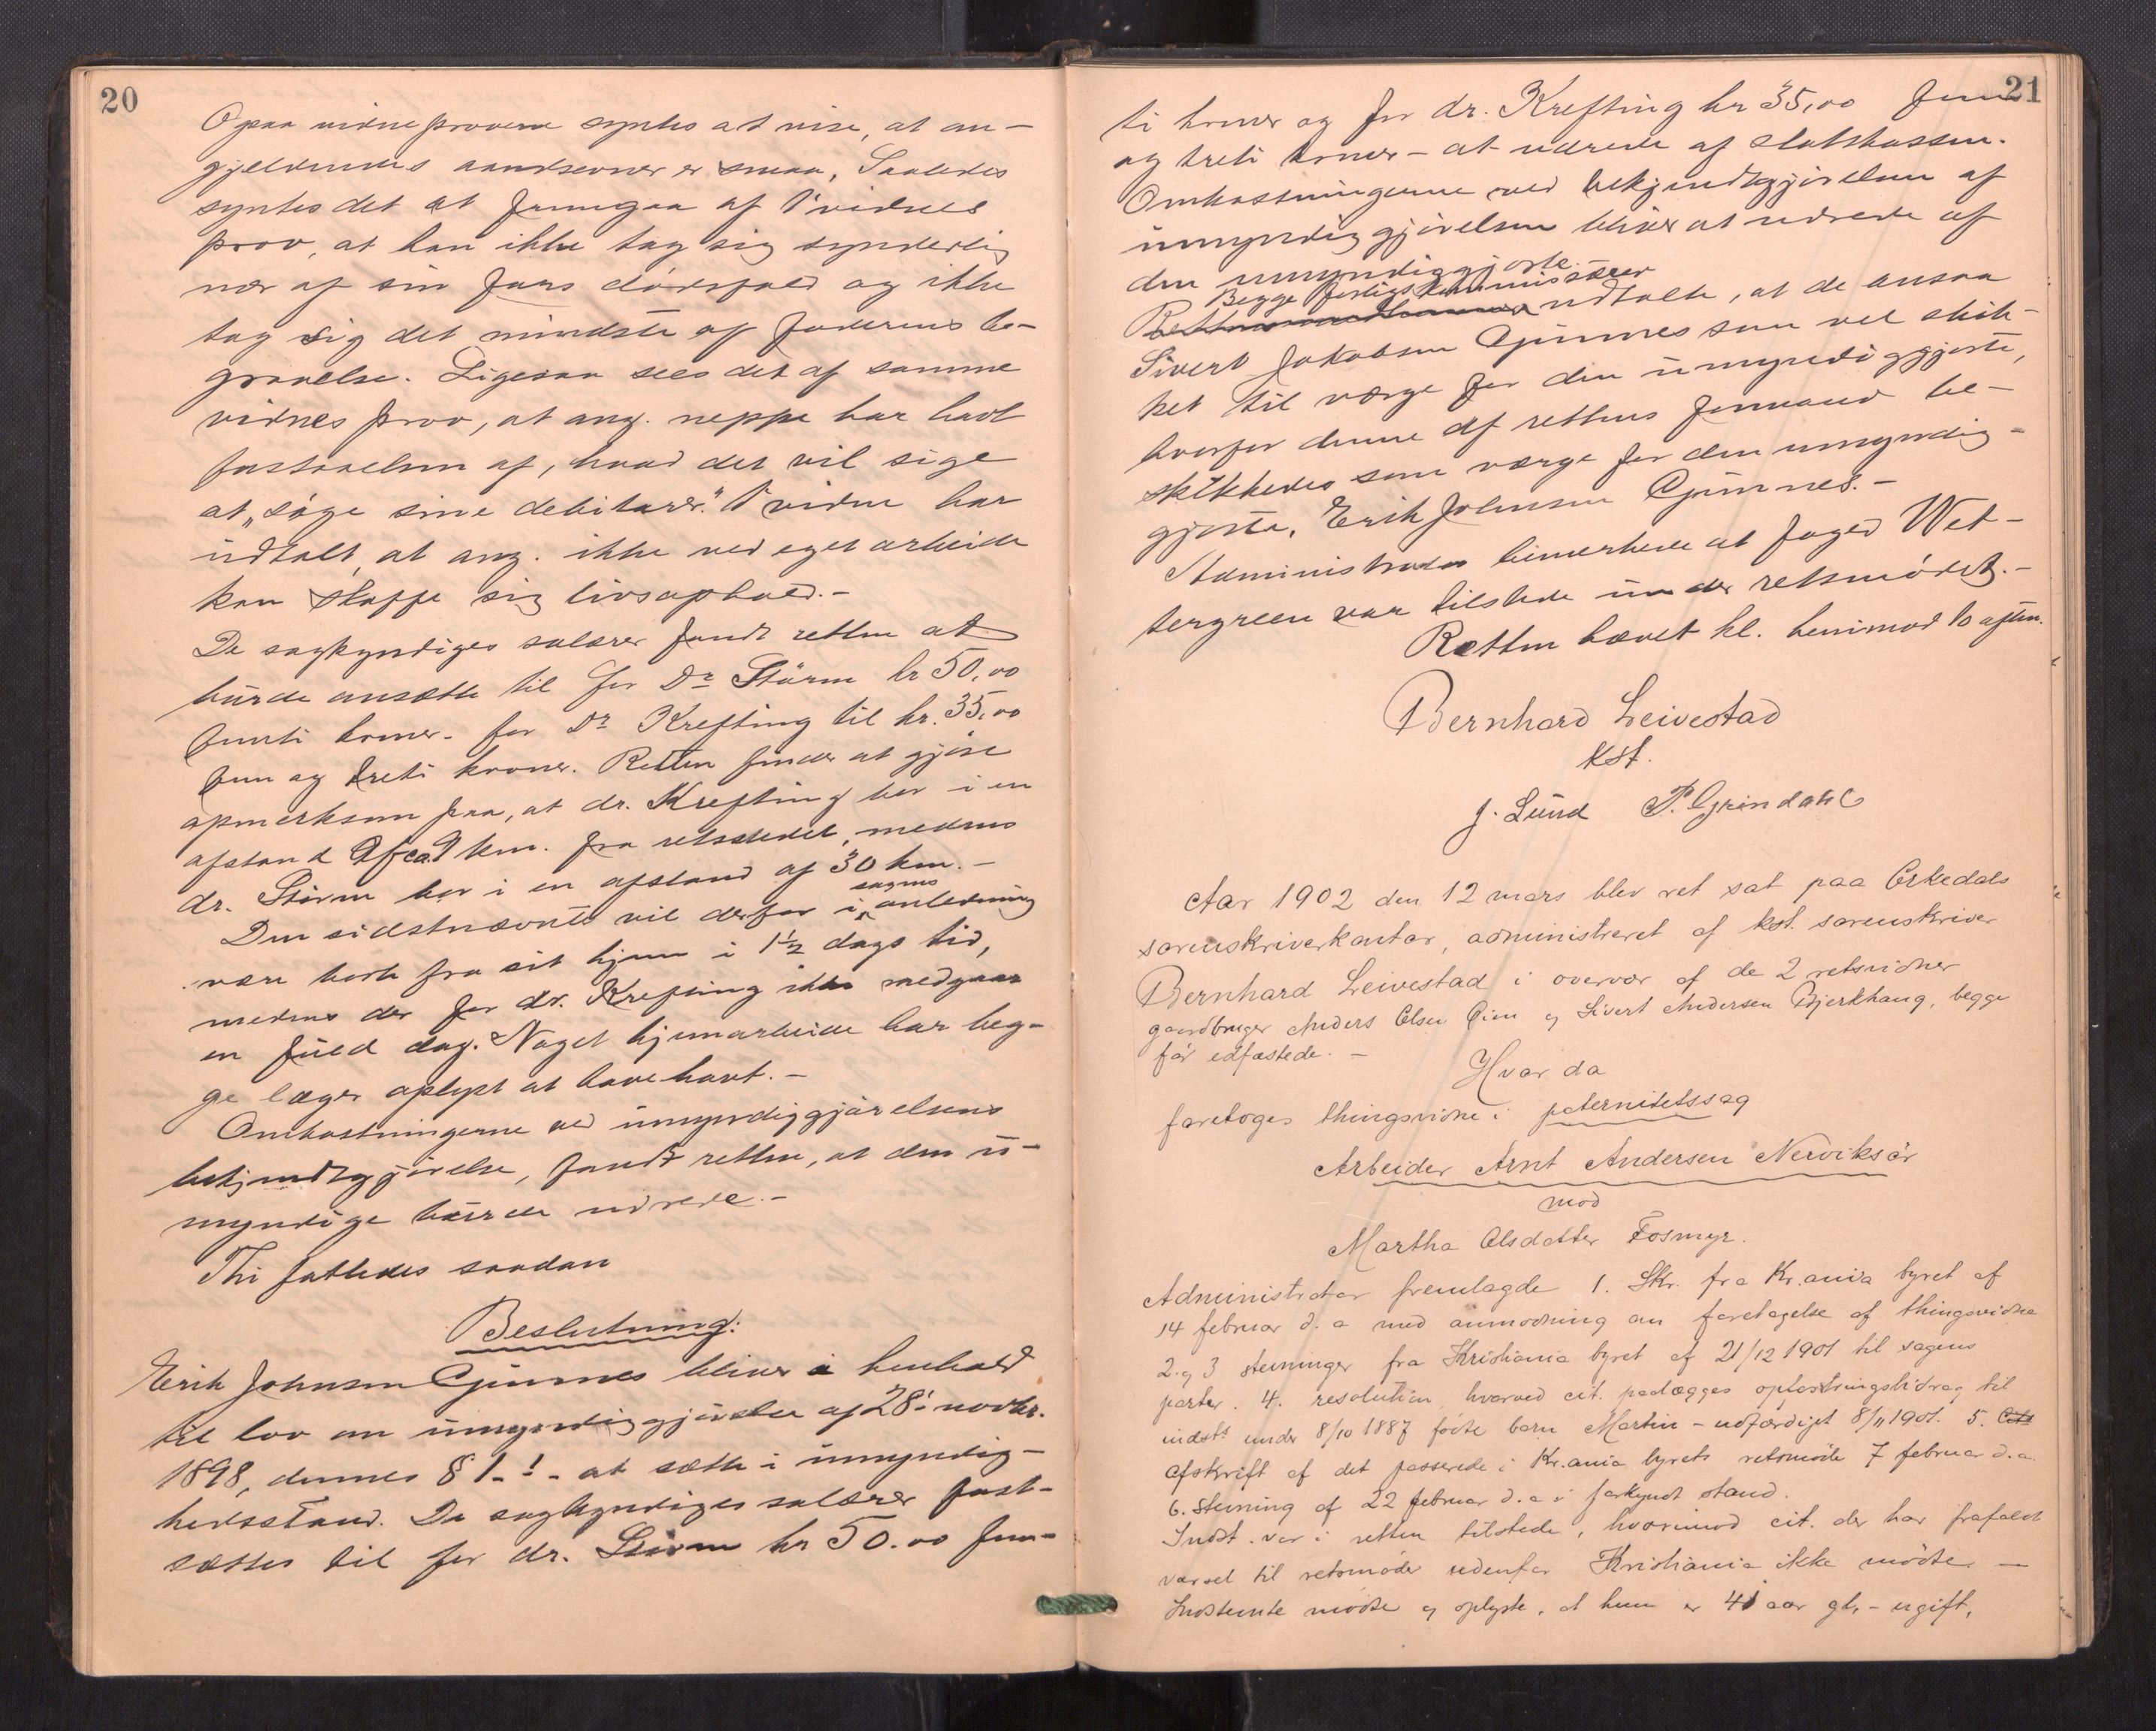 20
Ogsaa vidneprovene syntes at vise, at an-
gjeldendes aandsevner er smaa. Saaledes
syntes det at fremgaa af 1 vidnes
prov, at han ikke tog sig synderlig
nær af sin fars dødsfald og ikke
tog sig det mindste af faderens be-
gravelse. Ligesaa sees det af samme
vidnes prov, at ang. neppe har havt
forstaaelsen af, hvad det vil sige
at „søge sine debitorer." 1 vidne har
udtalt, at ang. ikke ved eget arbeide
kan skaffe sig livsophold.-
De sagkyndiges salærer fandt retten at
burde ansætte til for Dr Størm kr 50,00
femti kroner. for Dr Krefting til kr. 35,00
fem og treti kroner. Retten finder at gjøre
opmerksom paa, at dr. Krefting bor i en
afstand af ca 9 km. fra retsstedet, medens
dr. Størm bor i en afstand af 30 km.-
Den sidstnævnte vil derfor i sagens anledning
være borte fra sit hjem i 1½ dags tid,
medens der for dr. Krefting ikke medgaar
en fuld dag. Noget hjemarbeide har beg-
ge læger oplyst at have havt.-
Omkostningerne ved umyndiggjørelsens
bekjendtgjørelse, fandt retten, at den u-
myndige burde udrede.-
Thi fattedes saadan
Beslutning:
Erik Johnsen Gjønnes bliver i henhold
til lov om umyndiggjørelse af 28. novbr.
1898, dennes § 1-1- at sætte i umyndig-
hedsstand. De sagkyndiges salærer fast-
sættes til for dr. Størm kr 50.00 fem-
21
ti kroner og for dr. Krefting kr 35,00 fem
og treti kroner - at udrede af statskassen.
Omkostningerne ved bekjendtgjørelsen af
umyndiggjørelsen bliver at udrede af
den umyndiggjorte.
Begge forligskommissærer
udtalte, at de ansaa
Sivert Jakobsen Gjønnes som vel skik-
ket til værge for den umyndiggjorte,
hvorfor denne af rettens formand be-
skikkedes som værge for den umyndig-
gjorte, Erik Johnsen Gjønnes.-
Administrator bemerkede at foged Wet-
tergreen var tilstede under retsmødet.-
Retten hævet kl. henimod 10 aften.
Bernhard Leivestad
kst.
J. Lund P. Grindahl
Aar 1902 den 12 mars blev ret sat paa Orkedals
sorenskriverkontor, administreret af kst. sorenskriver
Bernhard Leivestad i overvær af de 2 retsvidner
gaardbruger Anders Olsen Øien og Sivert Andersen Bjerkhaug, begge
før edfæstede. -
Hvor da
foretoges thingsvidne i paternitetssag
Arbeider Arnt Andersen Nerviksør
mod
Martha Olsdatter Fosmyr.
Administrator fremlagde 1. Skr. fra Kr.ania byret af
14 februar d. a med anmodning om foretagelse af thingsvidne
2. og 3 stevninger fra Kristiania byret af 21/12 1901 til sagens
parter. 4. resolution hvorved cit. paalægges opfostringsbidrag til
indsts under 8/10 1887 fødte barn Martin - udfærdiget 8/11 1901. 5.
Afskrift af det passerede i Kr.ania byrets retsmøde 7 februar d. a.
6. Stevning af 22 februar d. a i forkyndt stand.
Indst. var i retten tilstede, hvorimod cit. der har frafaldt
varsel til retsmøder udenfor Kristiania ikke mødte. -
Indstevnte mødte og oplyste, at hun er 41 aar gl. - ugift,